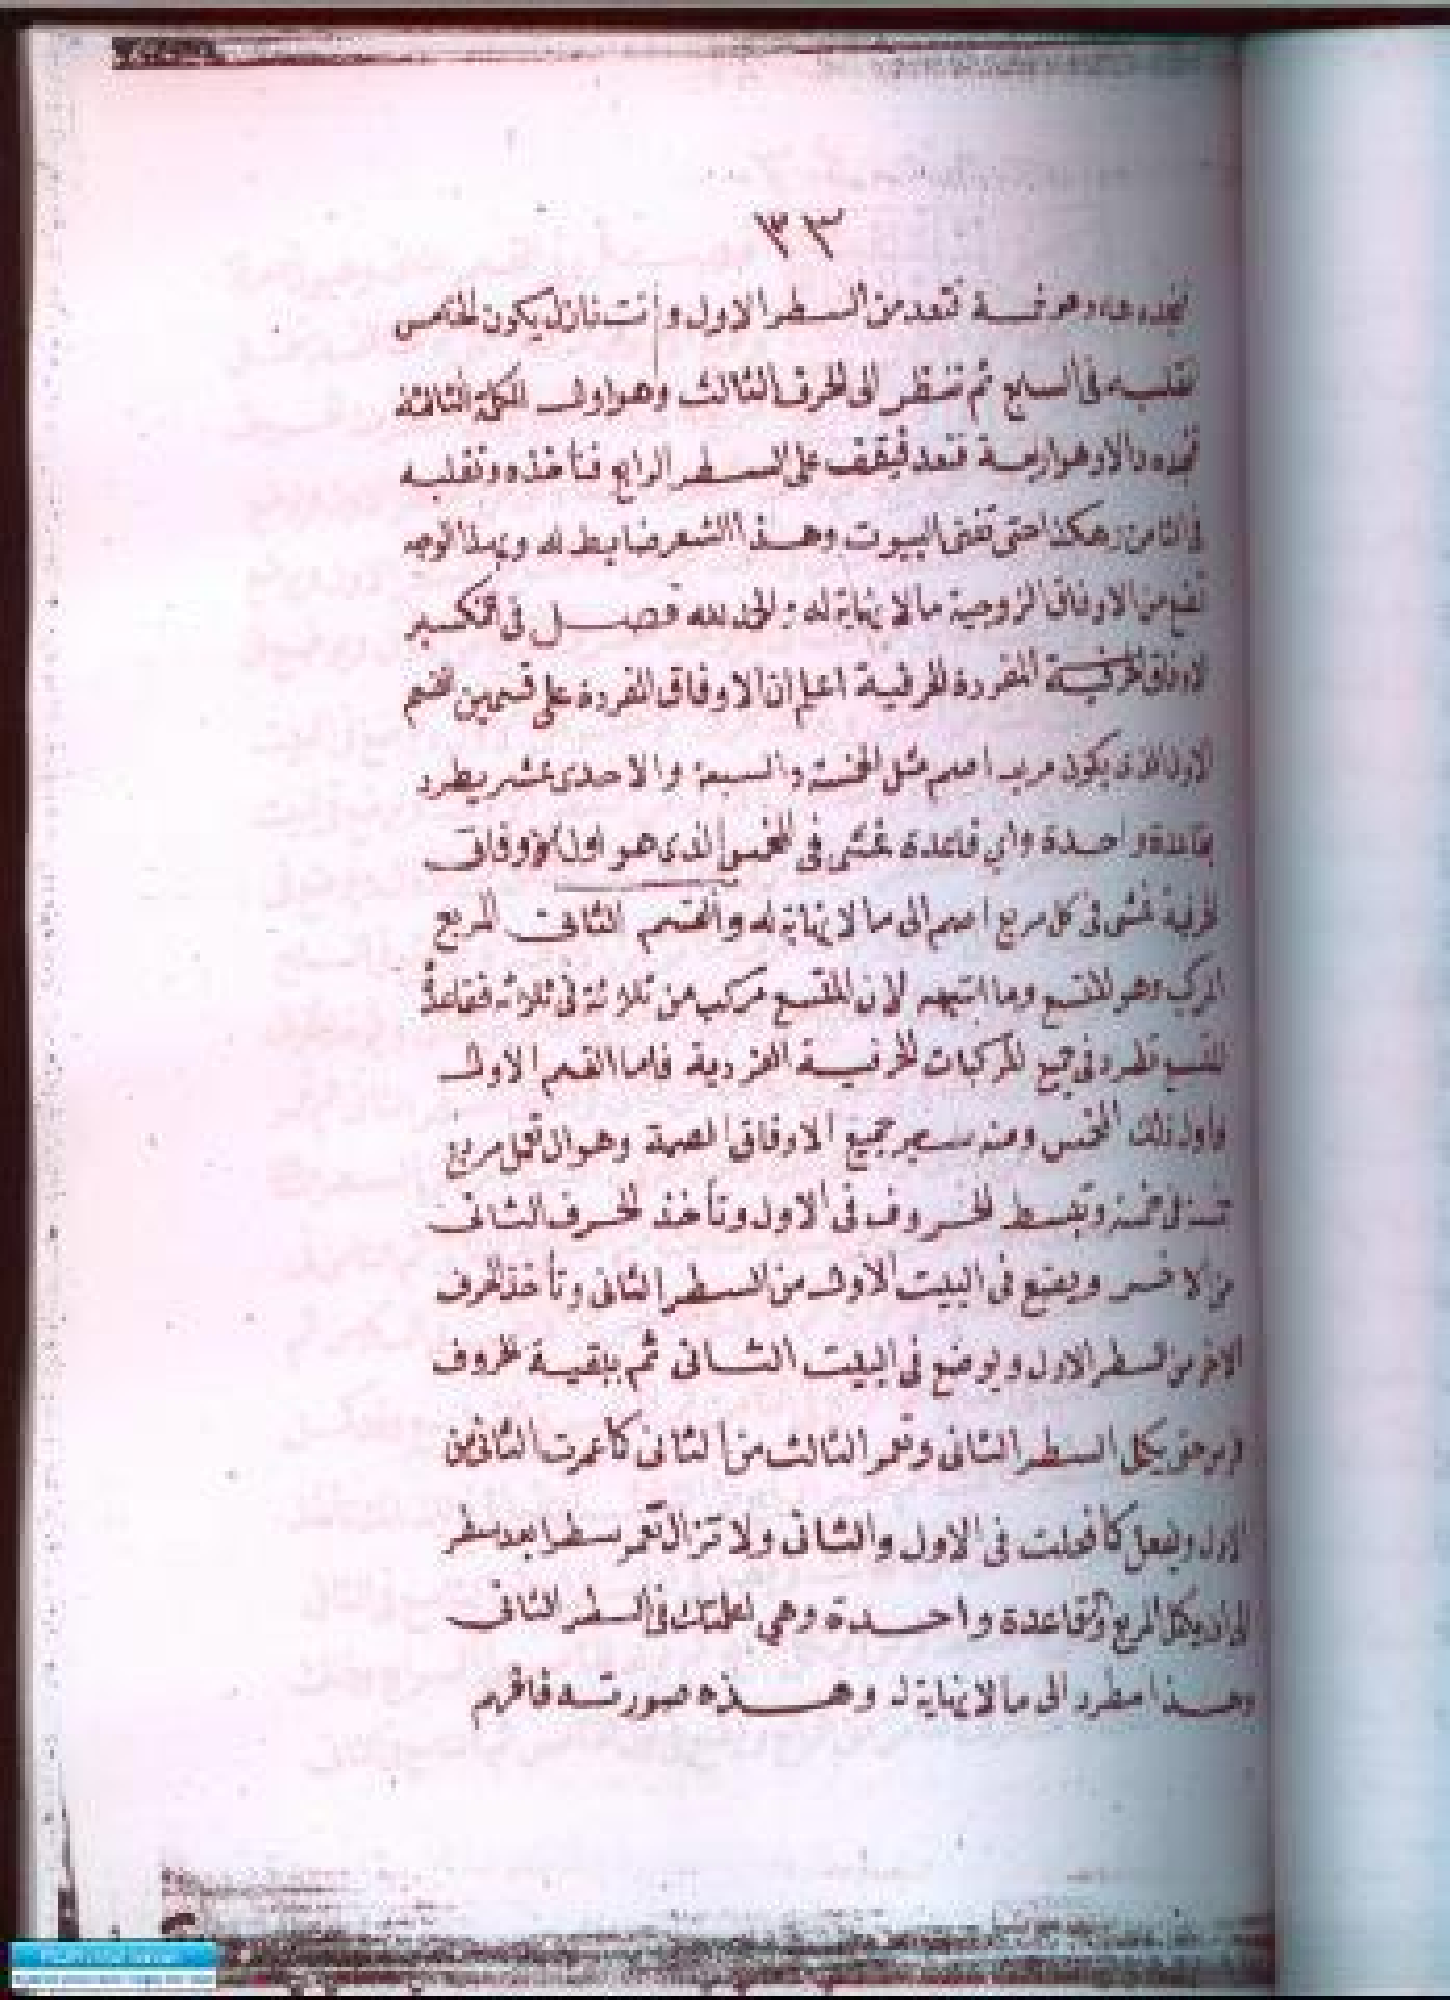 ٣٣
تجده هاء وهو خمسة فتعد من السطر الاول وانت نازل يكون الخامس
تقلبه في السابع ثم تنظر الى الحرف الثالث وهو اول الكلمة الثالثة
تجده دالا وهو اربعة فتعد فيقف على السطر الرابع فتأخذه وتقلبه
في الثامن وهكذا حتى تفنى البيوت وهذا الشعر ضابط له وبهذا الوجه
تضع من الاوفاق الزوجية ما لا نهاية له والحمد لله فصل في تكسير
الاوفاق الحرفية المفردة الحرفية اعلم ان الاوفاق المفردة على قسمين القسم
الاول الذي يكون مربع اصم مثل الخمسة والسبعة والاحدى عشر يطرد
بقاعدة واحدة واي قاعدة تمشي في المخمس الذي هو اول الاوفاق
الحرفية تمشي في كل مربع اصم الى ما لا نهاية له والقسم الثاني المربع
المركب وهو المتسع وما اشبهه لان المتسع مركب من ثلاثة في ثلاثة فقاعدة
المتسع تطرد في جميع المركبات الحرفية الفردية فاما القسم الاول
فاول ذلك المخمس ومنه جميع الاوفاق المصمة وهو ان تعمل مربع
خمسة في خمسة وتبسط الحروف في الاول وتأخذ الحرف الثاني
من الاخر ويضع في البيت الاول من السطر الثاني وتأخذ الحرف
الاخر من السطر الاول ويوضع في البيت الثاني ثم ببقية الحروف
حتى يكمل السطر الثاني وتعمر الثالث من الثاني كما عمرت الثاني من
الاول وتفعل كما فعلت في الاول والثاني ولا تزال تعمر سطرا بعد سطر
الى ان يكمل المربع والقاعدة واحدة وهي في السطر الثاني
وهذا مطرد الى ما لا نهاية له وهذه صورته فافهم